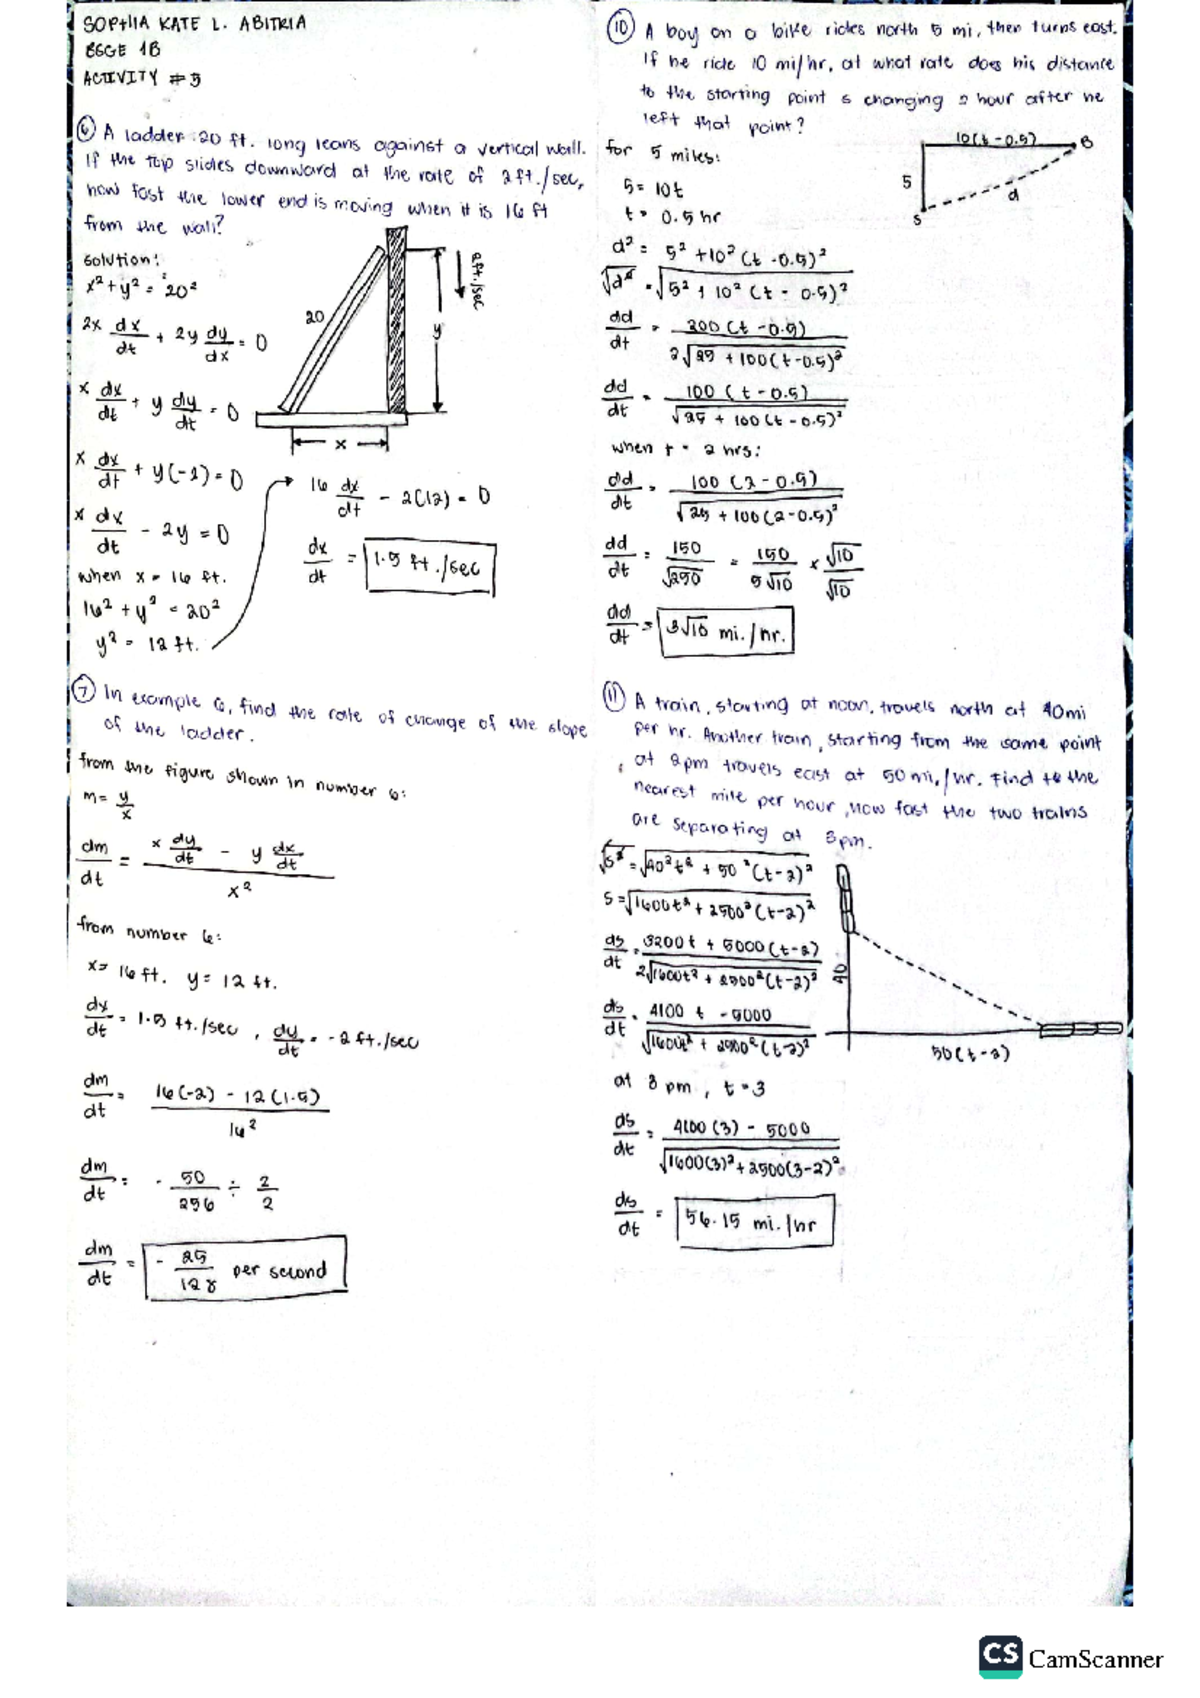 SOPHIA KATE L. ABITRIA
BSGE 1B
ACTIVITY #3
⑥ A ladder 20 ft. long leans against a vertical wall.
If the top slides downward at the rate of 2 ft./sec,
how fast the lower end is moving when it is 16 ft
from the wall?
solution:
x² + y² = 20²
2x dx/dt + 2y dy/dx = 0
x dx/dt + y dy/dt = 0
x dx/dt + y(-2) = 0
x dx/dt - 2y = 0
when x = 16 ft.
16² + y² = 20²
y² = 12 ft.
20
y
x
2ft./sec
16 dx/dt - 2(12) = 0
dx/dt = 1.5 ft./sec
⑦ In example 6, find the rate of change of the slope
of the ladder.
from the figure shown in number 6:
m = y/x
dm/dt = (x dy/dt - y dx/dt)/x²
from number 6:
x = 16 ft. y = 12 ft.
dx/dt = 1.5 ft./sec, dy/dt = -2 ft./sec
dm/dt = (16(-2) - 12(1.5))/16²
dm/dt = -50/256 ÷ 2/2
dm/dt = -25/128 per second
⑩ A boy on a bike rides north 5 mi, then turns east.
If he ride 10 mi/hr, at what rate does his distance
to the starting point s changing 2 hour after he
left that point?
for 5 miles:
5 = 10t
t = 0.5 hr
10(t - 0.5)
B
5
d
S
d² = 5² + 10²(t - 0.5)²
√d² = √5² + 10²(t - 0.5)²
dd/dt = 200(t - 0.5)/2√25 + 100(t - 0.5)²
dd/dt = 100(t - 0.5)/√25 + 100(t - 0.5)²
when t = 2 hrs:
dd/dt = 100(2 - 0.5)/√25 + 100(2 - 0.5)²
dd/dt = 150/√250 = 150/5√10 × √10/√10
dd/dt = 3√10 mi./hr.
⑪ A train, starting at noon, travels north at 40mi
per hr. Another train, starting from the same point
, at 2pm travels east at 50 mi./hr. Find to the
nearest mile per hour, how fast the two trains
are separating at 3pm.
√s² = √40²t² + 50²(t - 2)²
s = √1600t² + 2500²(t - 2)²
ds/dt = 3200t + 5000(t - 2)/2√1600t² + 2500²(t - 2)²
ds/dt = 4100t - 5000/√1600t² + 2500²(t - 2)²
40
50(t - 2)
at 3 pm, t = 3
ds/dt = 4100(3) - 5000/√1600(3)² + 2500(3 - 2)²
ds/dt = 56.15 mi./hr
CS CamScanner